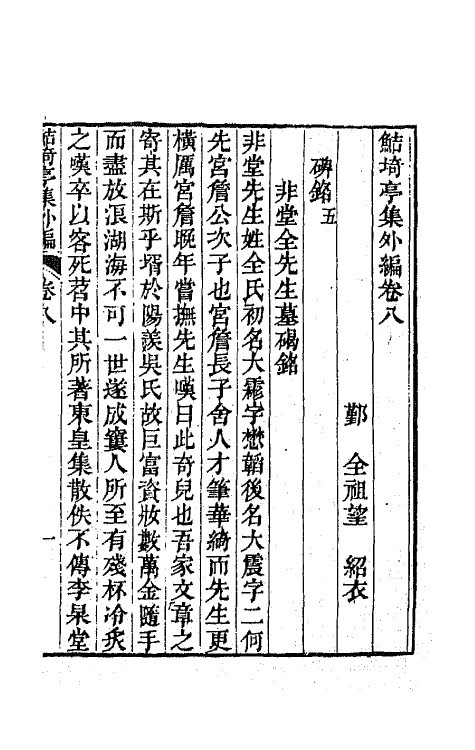 鮚埼亭集外編卷八
鄞　全祖望　紹衣
碑銘五
非堂全先生墓碣銘
非堂先生姓全氏初名大霏字懋韜後名大震字二何
先宮詹公次子也宮詹長子舍人才筆華綺而先生更
橫厲宮詹晚年嘗撫先生嘆曰此奇兒也吾家文章之
寄其在斯乎壻於陽羨吳氏故巨富資妝數萬金隨手
而盡放浪湖海不可一世遂成窶人所至有殘杯冷炙
之嘆卒以客死苕中其所著東皇集散佚不傳李杲堂
鮚埼亭集外編　卷八　一